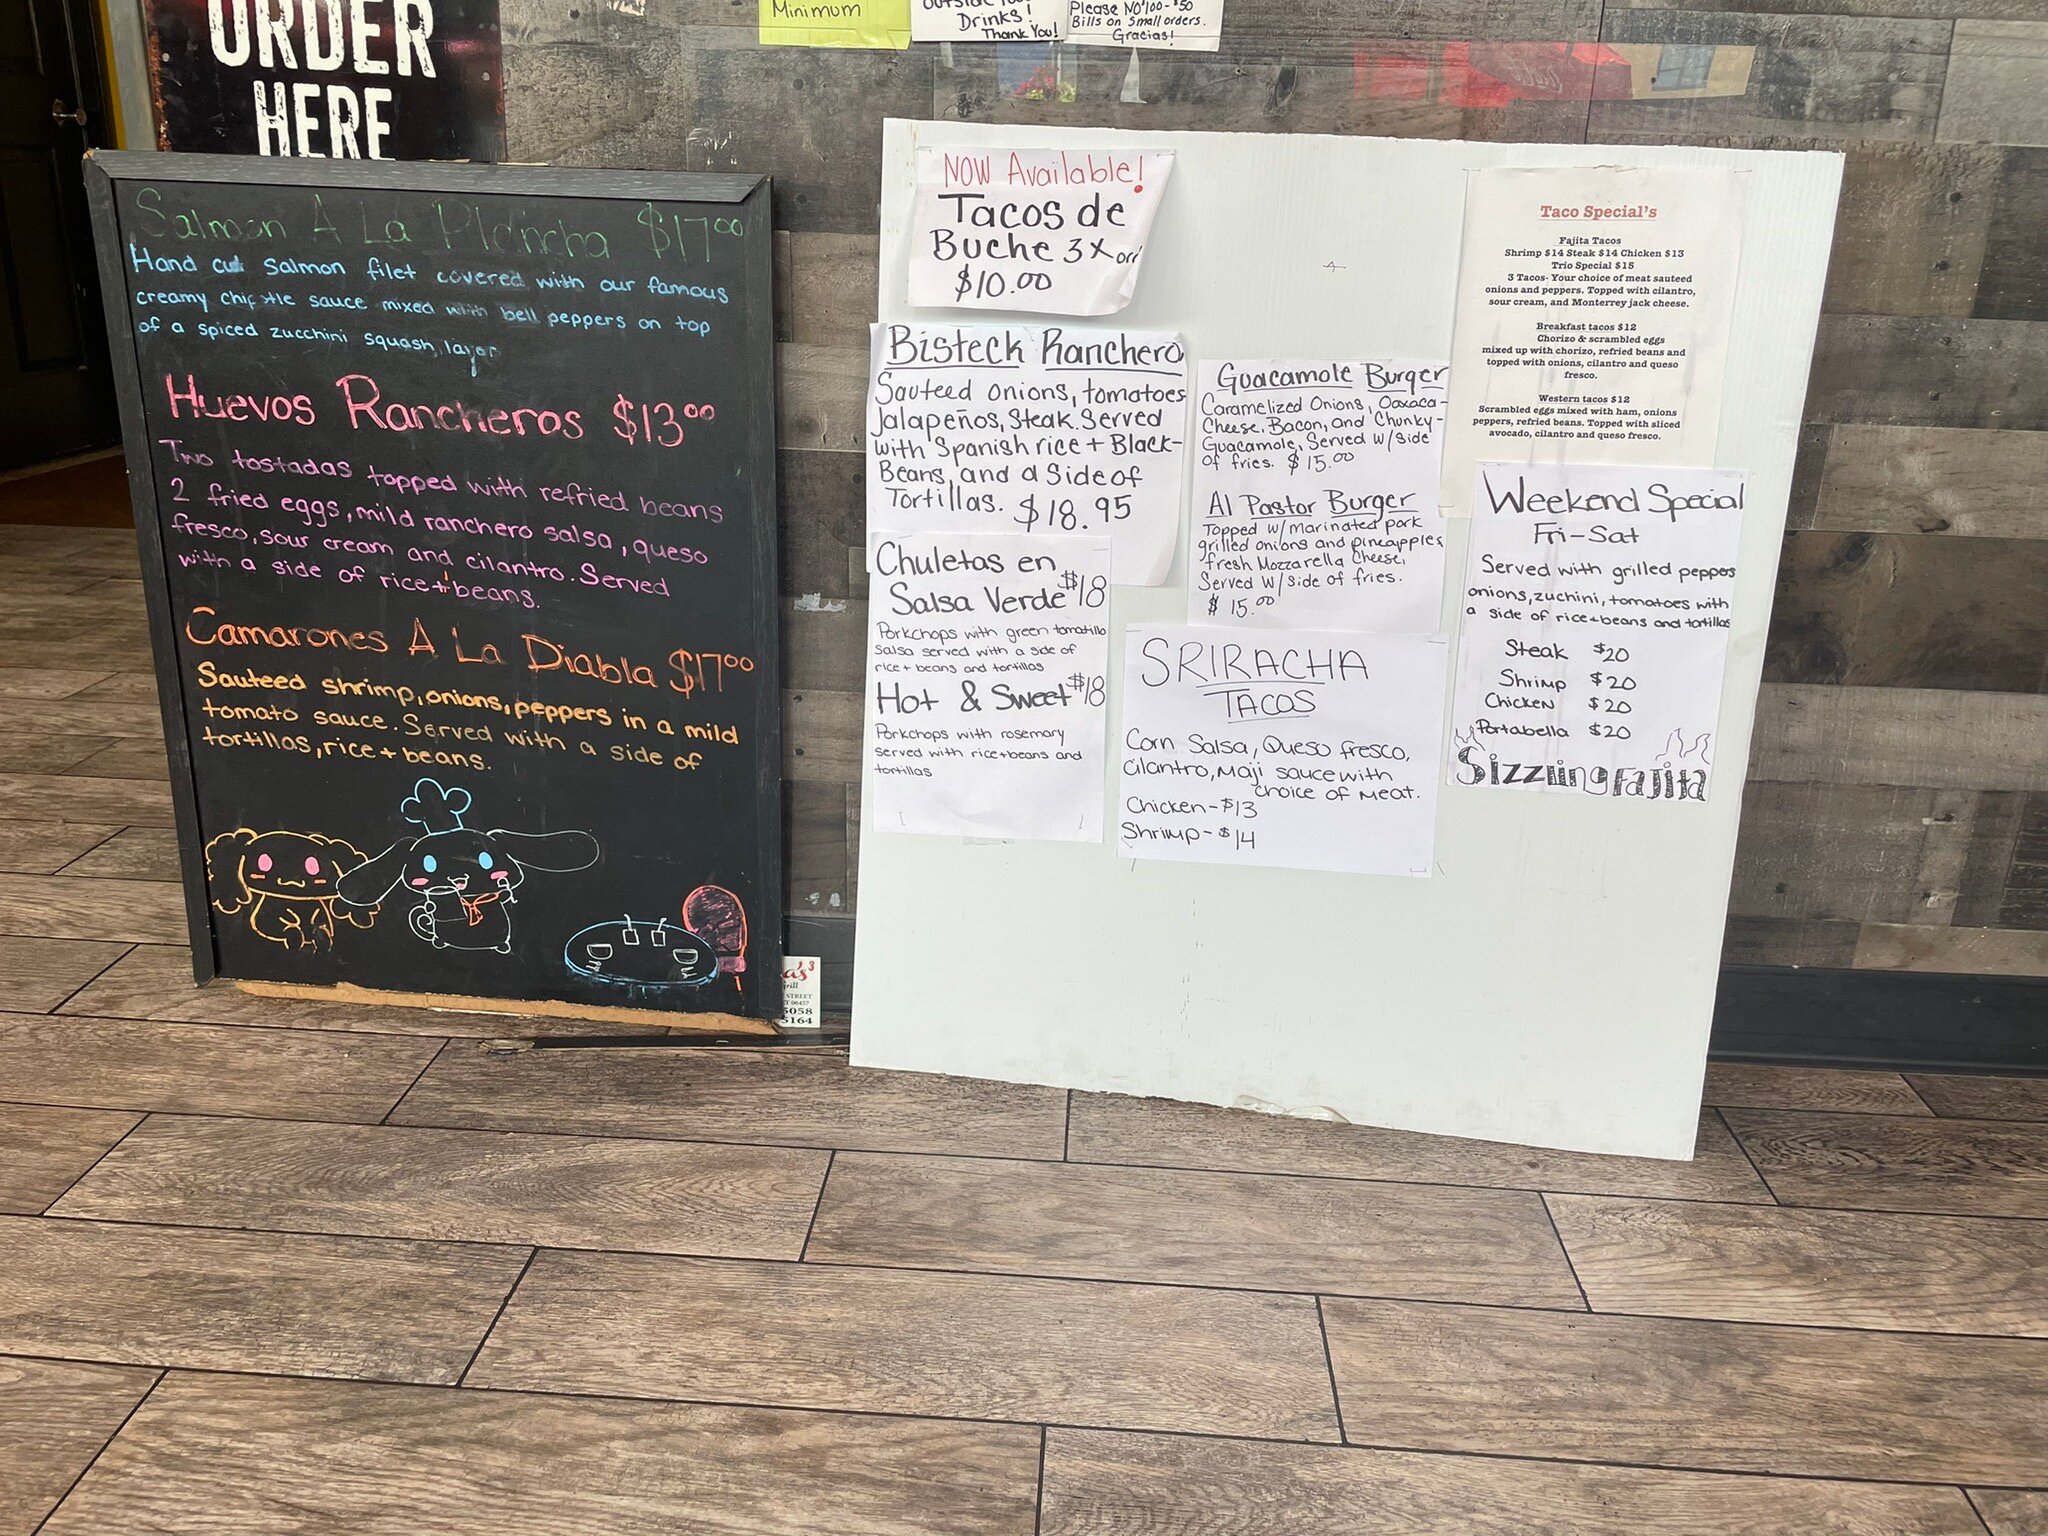 ORDER
HERE
Minimum
Drinks!
Thank You!
Please NO $100-$50
Bills on Small orders.
Gracias!
Salmon A La Plancha $17.00
Hand cut salmon filet covered with our famous
creamy chipotle sauce mixed with bell peppers on top
of a spiced zucchini squash layer
Huevos Rancheros $13.00
Two tostadas topped with refried beans
2 fried eggs, mild ranchero salsa, queso
fresco, sour cream and cilantro. Served
with a side of rice + beans.
Camarones A La Diabla $17.00
Sauteed shrimp, onions, peppers in a mild
tomato sauce. Served with a side of
tortillas, rice + beans.
STREET
06457
5058
5164
NOW Available!
Tacos de
Buche 3x
$10.00
Bisteck Ranchero
Sauteed onions, tomatoes
Jalapeños, Steak. Served
with Spanish rice + Black-
Beans, and a Side of
Tortillas. $18.95
Chuletas en
Salsa Verde $18
Porkchops with green tomatillo
Salsa served with a side of
rice + beans and tortillas
Hot & Sweet $18
Porkchops with rosemary
served with rice + beans and
tortillas
Guacamole Burger
Caramelized Onions, Oaxaca-
Cheese, Bacon, and Chunky-
Guacamole, Served w/ side
of fries. $15.00
Al Pastor Burger
Topped w/ marinated pork
grilled onions and pineapples
fresh Mozzarella Cheese,
Served w/ side of fries.
$15.00
SRIRACHA
TACOS
Corn Salsa, Queso fresco,
Cilantro, Maji sauce with
choice of meat.
Chicken - $13
Shrimp - $14
Taco Special's
Fajita Tacos
Shrimp $14 Steak $14 Chicken $13
Trio Special $15
3 Tacos- Your choice of meat sauteed
onions and peppers. Topped with cilantro,
sour cream, and Monterrey jack cheese.
Breakfast tacos $12
Chorizo & scrambled eggs
mixed up with chorizo, refried beans and
topped with onions, cilantro and queso
fresco.
Western tacos $12
Scrambled eggs mixed with ham, onions
peppers, refried beans. Topped with sliced
avocado, cilantro and queso fresco.
Weekend Special
Fri-Sat
Served with grilled peppers
onions, zuchini, tomatoes with
a side of rice + beans and tortillas
Steak $20
Shrimp $20
Chicken $20
Portabella $20
Sizzling Fajita